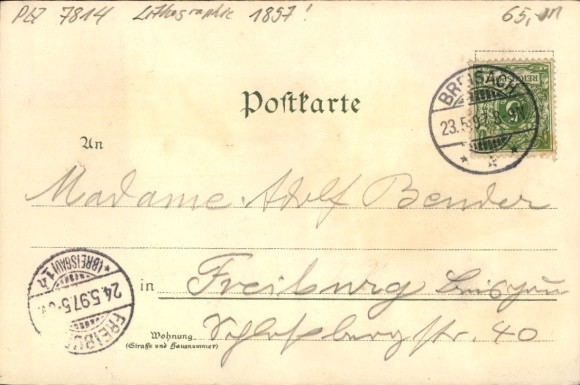 PLZ 7814 Lithographie 1897! 65,-M
REICHSPOST
5
BREISACH
23.5.97.
Postkarte
An
Madame Adolf Bender
in Freiburg Breisgau
Wohnung
(Straße und Hausnummer)
Schloßbergstr. 40
FREIBURG
24.5.97.5-
*(BREISGAU)1*